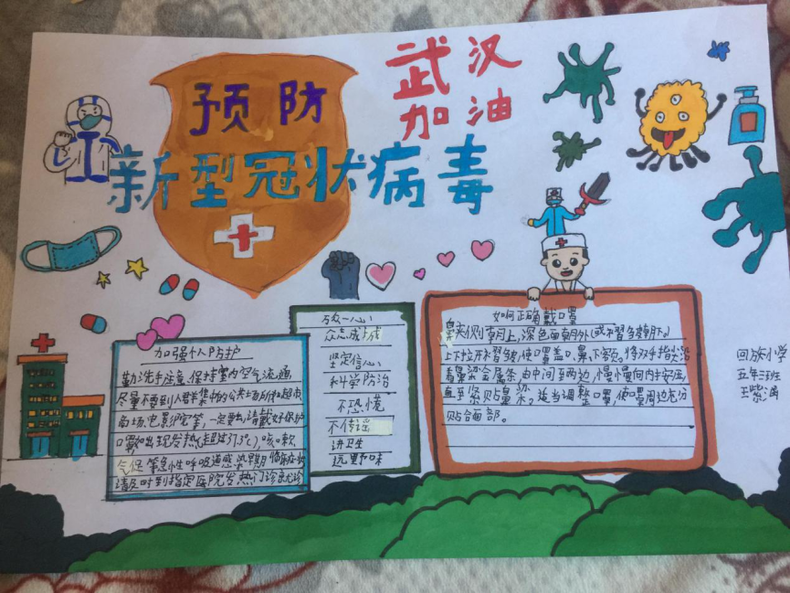 预防
武汉
加油
新型冠状病毒
加强个人防护
勤洗手注意,保持室内空气流通
尽量不要到人群集中的公共场所如超市
商场,电影院等,一定要出请戴好保护
口罩如出现发热(超过37.3℃)咳嗽
等急性呼吸道感染早期临床症状
请及时到指定医院发热门诊就诊
万众一心
众志成城
坚定信心
科学防治
不恐慌
不传谣
讲卫生
远里野味
如何正确戴口罩
鼻夹侧朝上,深色面朝外(或褶皱朝下)
上下拉开褶皱,使口罩盖口、鼻、下颌,将双手指尖沿
着鼻梁金属条,由中间至两边,慢慢向内按压,
直至紧贴鼻梁。适当调整口罩,使口罩周边充分
贴合面部。
回族小学
五年三班
王紫涵